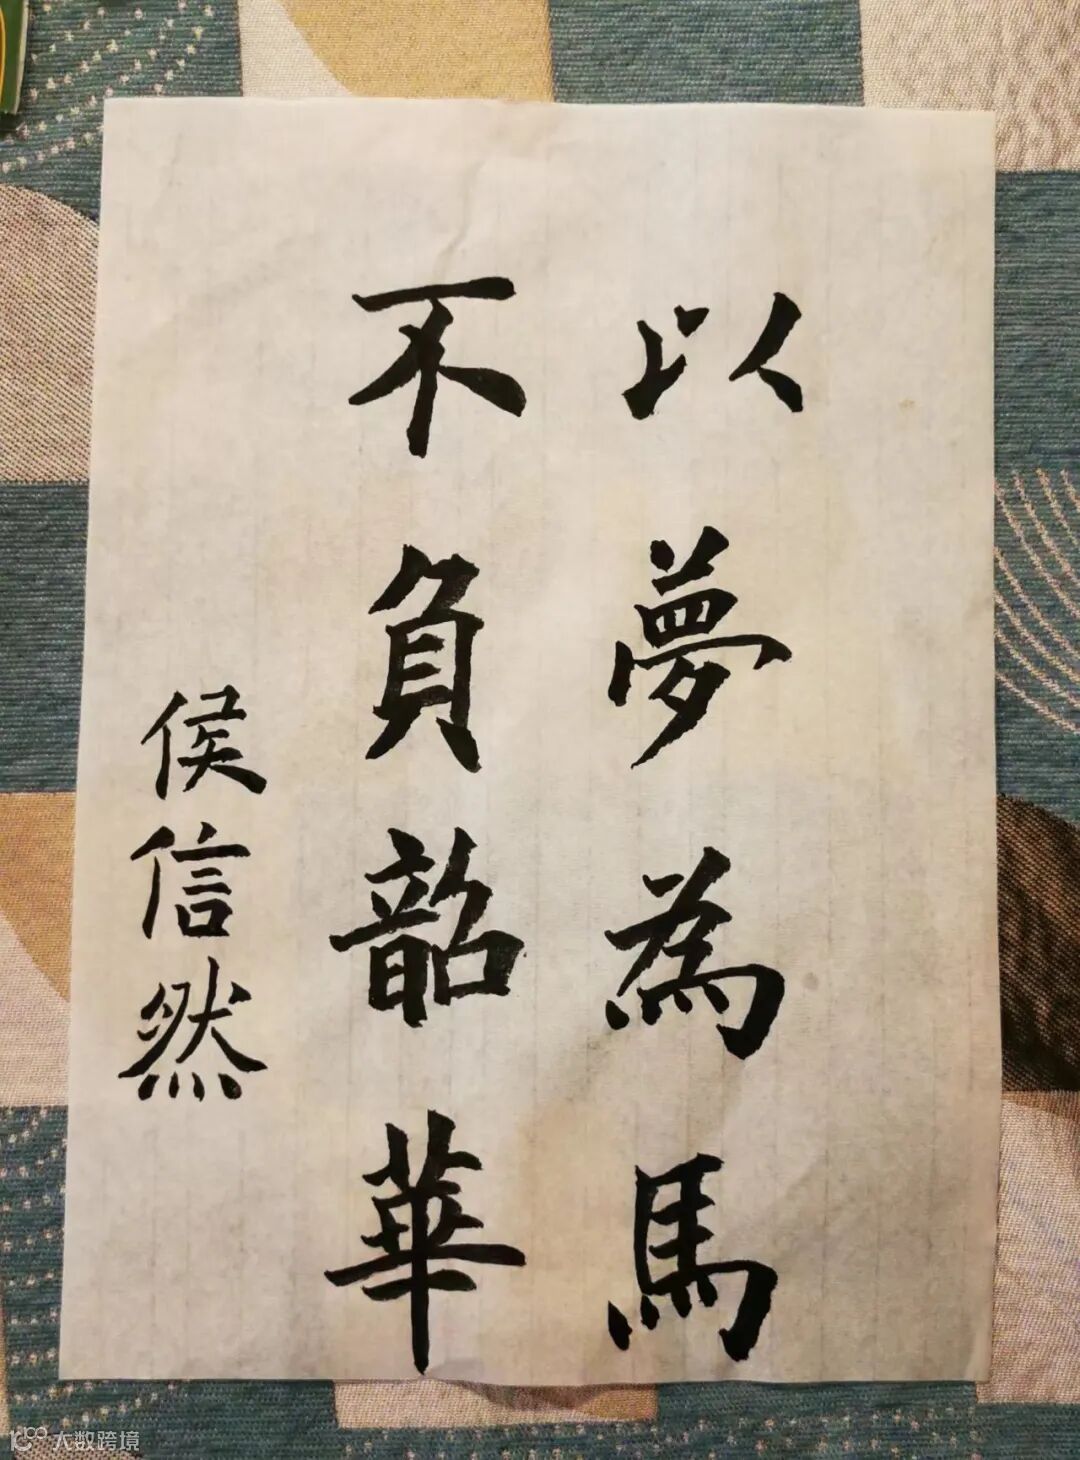 以夢為馬
不負韶華
侯信然
大数跨境